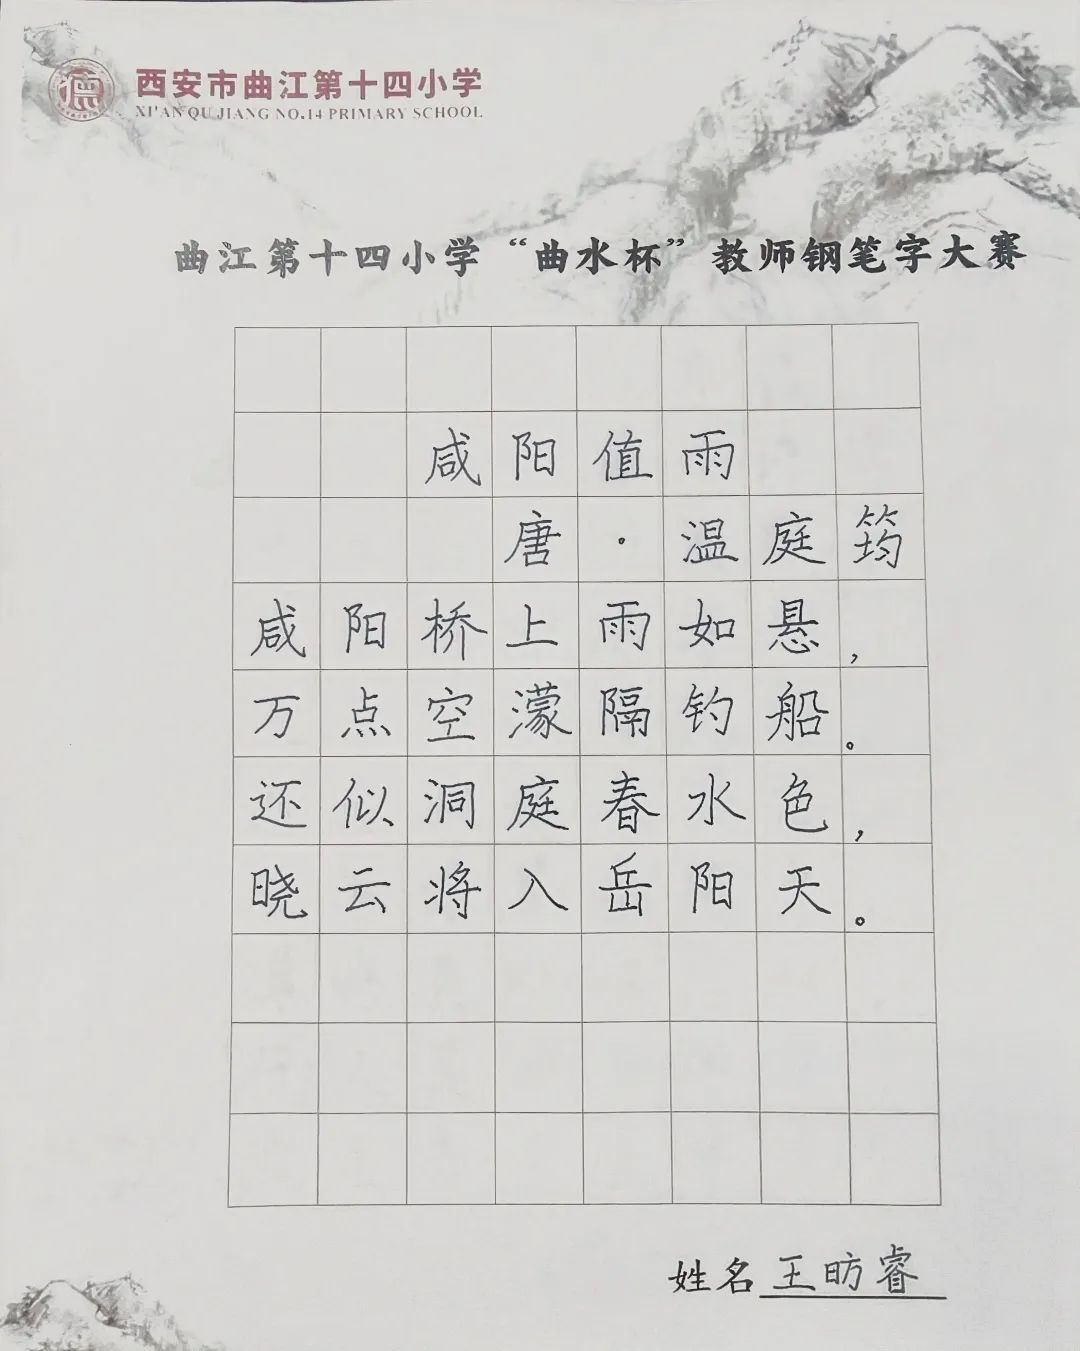 西安市曲江第十四小学
XI'AN QU JIANG NO.14 PRIMARY SCHOOL
曲江第十四小学“曲水杯”教师钢笔字大赛
咸阳值雨
唐·温庭筠
咸阳桥上雨如悬，
万点空濛隔钓船。
还似洞庭春水色，
晓云将入岳阳天。
姓名 王昉睿